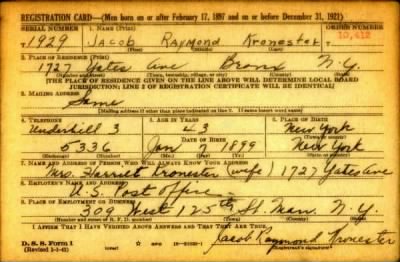 REGISTRATION CARD—(Men born on or after February 17, 1897 and on or before December 31, 1921)
SERIAL NUMBER 1. NAME (Print) ORDER NUMBER
1929 Jacob Raymond Kronester 10,412
(First) (Middle) (Last)
2. PLACE OF RESIDENCE (Print)
1727 Yates Ave Bronx N.Y.
(Number and street) (Town, township, village, or city) (County) (State)
[THE PLACE OF RESIDENCE GIVEN ON THE LINE ABOVE WILL DETERMINE LOCAL BOARD
JURISDICTION; LINE 2 OF REGISTRATION CERTIFICATE WILL BE IDENTICAL]
3. MAILING ADDRESS
Same
[Mailing address if other than place indicated on line 2. If same insert word same]
4. TELEPHONE 5. AGE IN YEARS 6. PLACE OF BIRTH
Underhill 3 43 New York
DATE OF BIRTH
5336 Jan 7 1899 New York
7. NAME AND ADDRESS OF PERSON WHO WILL ALWAYS KNOW YOUR ADDRESS
Mrs. Harriet Kronester (wife) 1727 Yates Ave
8. EMPLOYER'S NAME AND ADDRESS
U.S. Post Office
9. PLACE OF EMPLOYMENT OR BUSINESS
309 West 125th St. Man. N.Y.
(Number and street or R. F. D. number) (Town) (County) (State)
I AFFIRM THAT I HAVE VERIFIED ABOVE ANSWERS AND THAT THEY ARE TRUE.
D. S. S. Form 1
(Revised 1-1-42) (over) Jacob Raymond Kronester
(Registrant's signature)